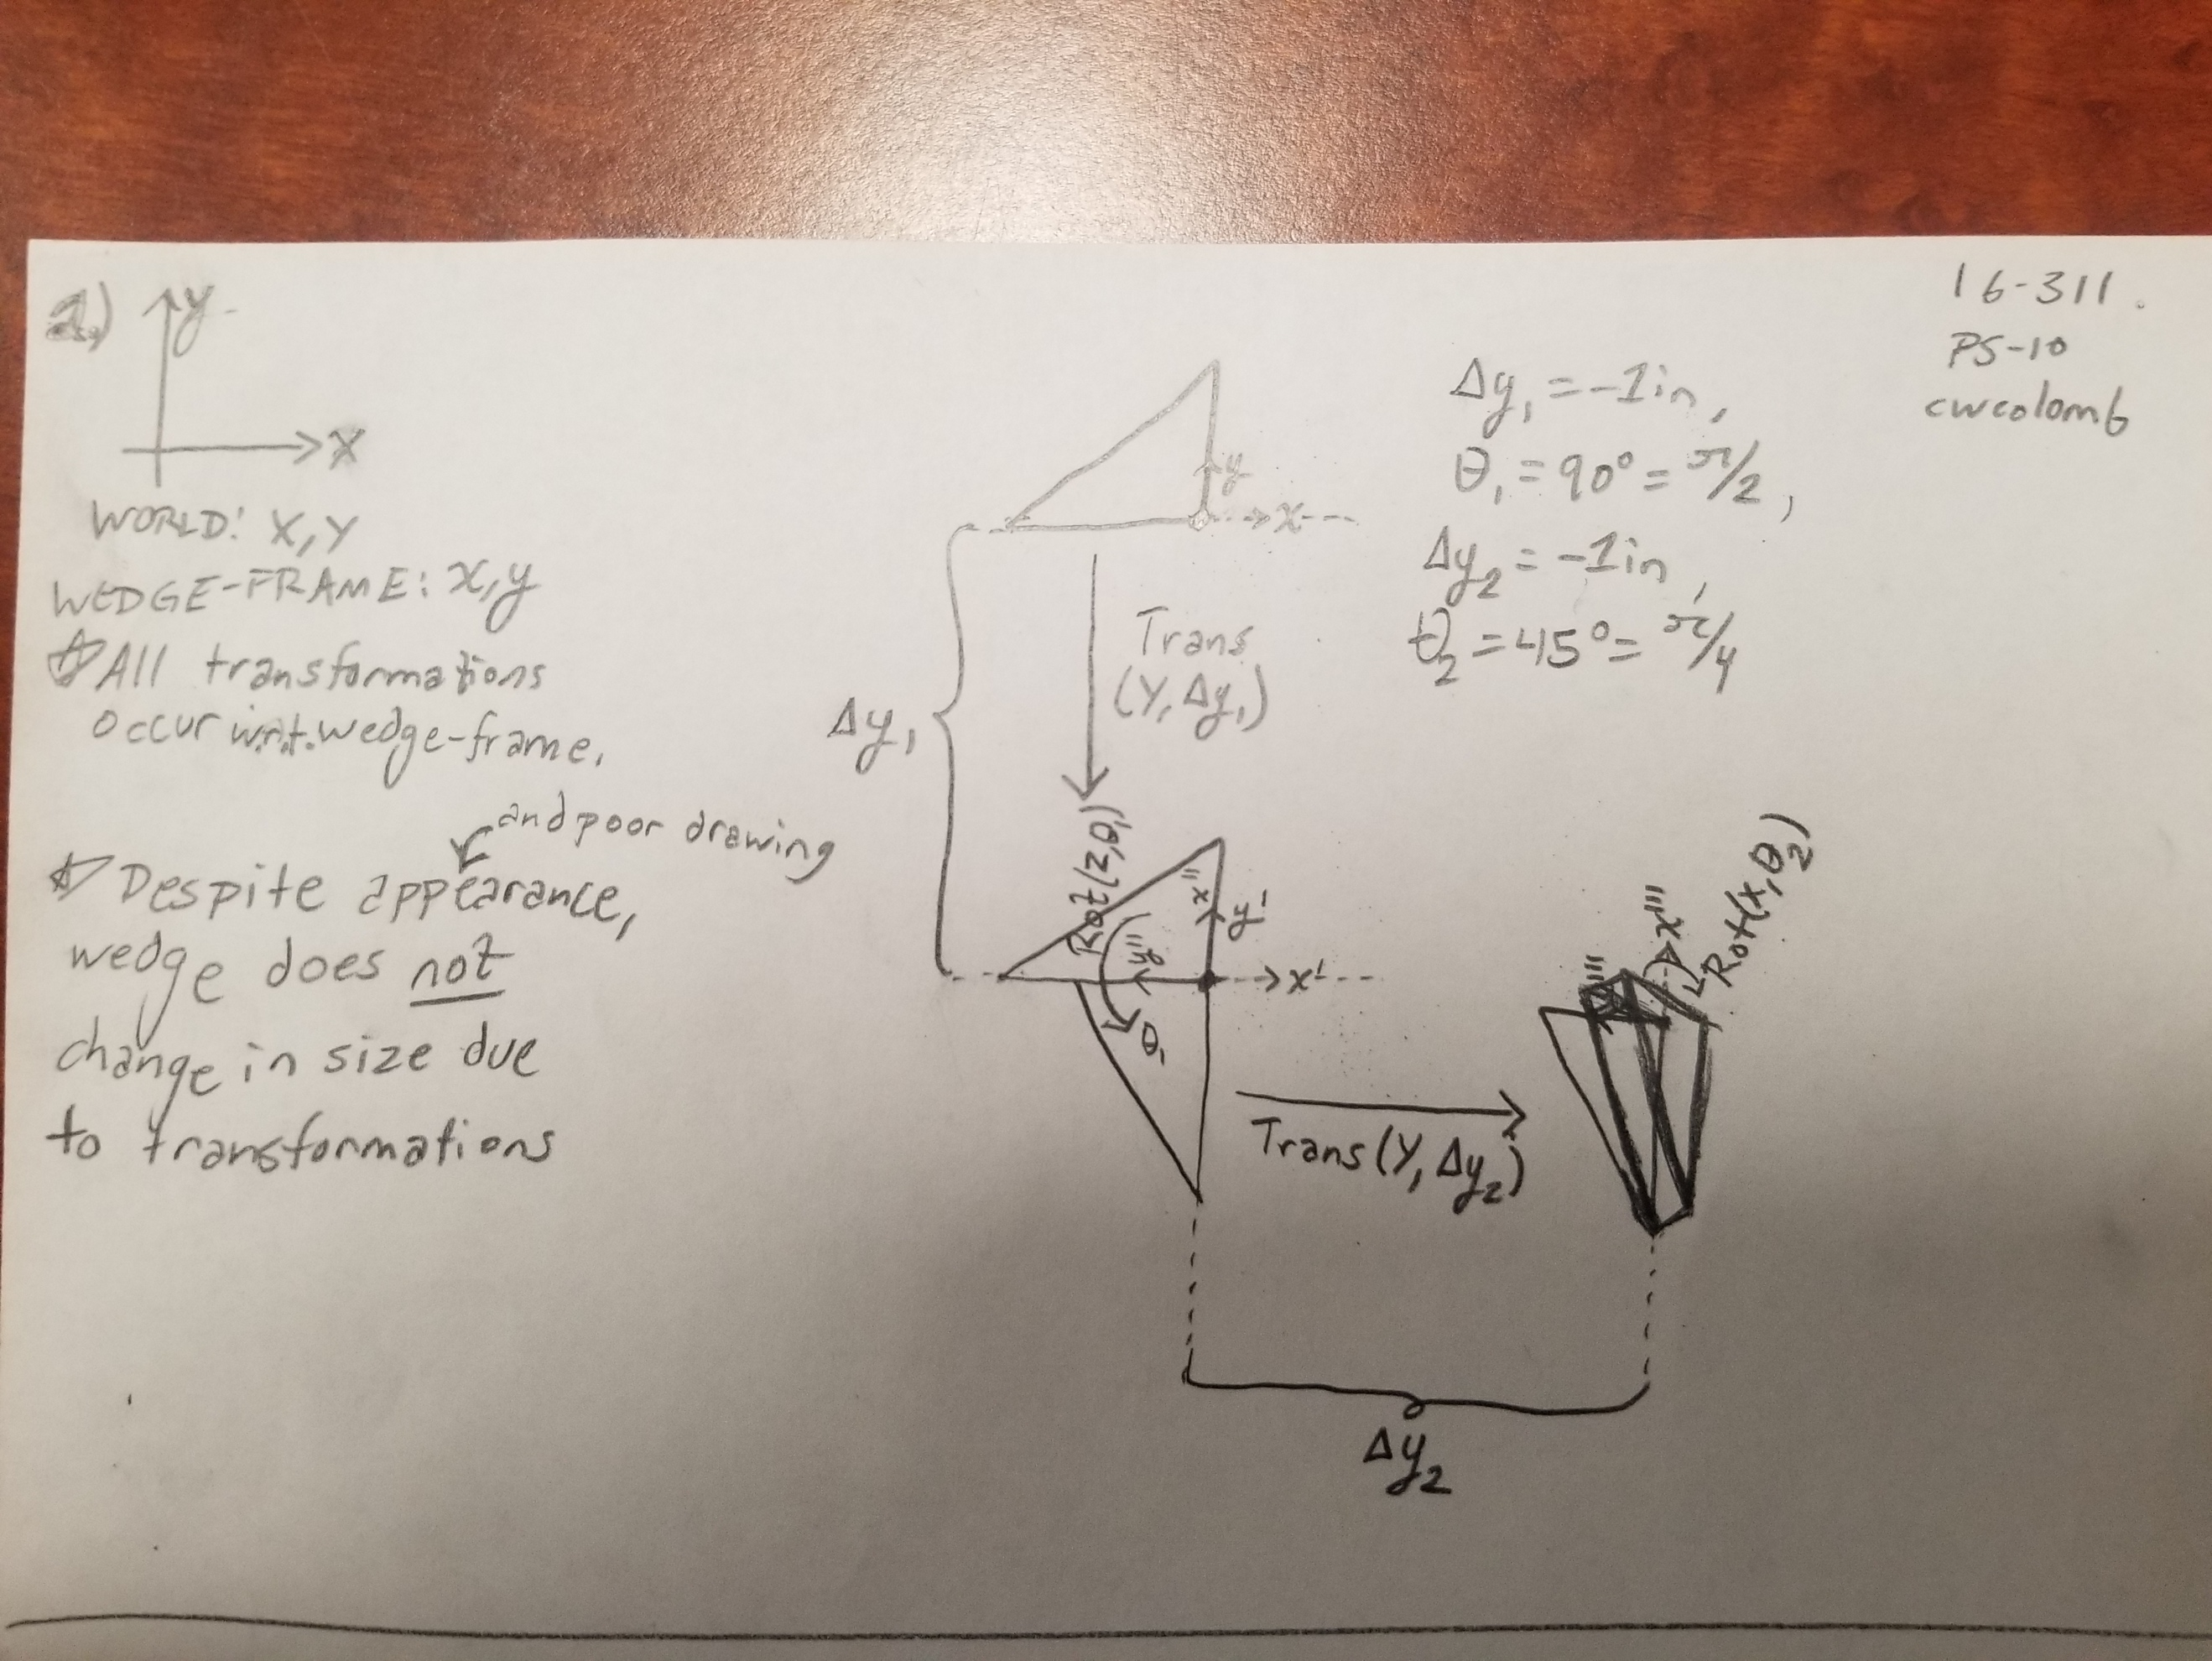 2.)
y
X
WORLD: X, Y
WEDGE-FRAME: x, y
☆ All transformations
occur w.r.t. wedge-frame.
and poor drawing
☆ Despite appearance,
wedge does not
change in size due
to transformations
16-311
PS-10
cwcolomb
Δy₁ = -1in,
θ₁ = 90° = π/2,
Δy₂ = -1in,
θ₂ = 45° = π/4
y
x
Δy₁
Trans
(Y, Δy₁)
Rot(z, θ₁)
x''
y'
y''
x'
θ₁
Trans(Y, Δy₂)
x'''
Rot(x, θ₂)
Δy₂